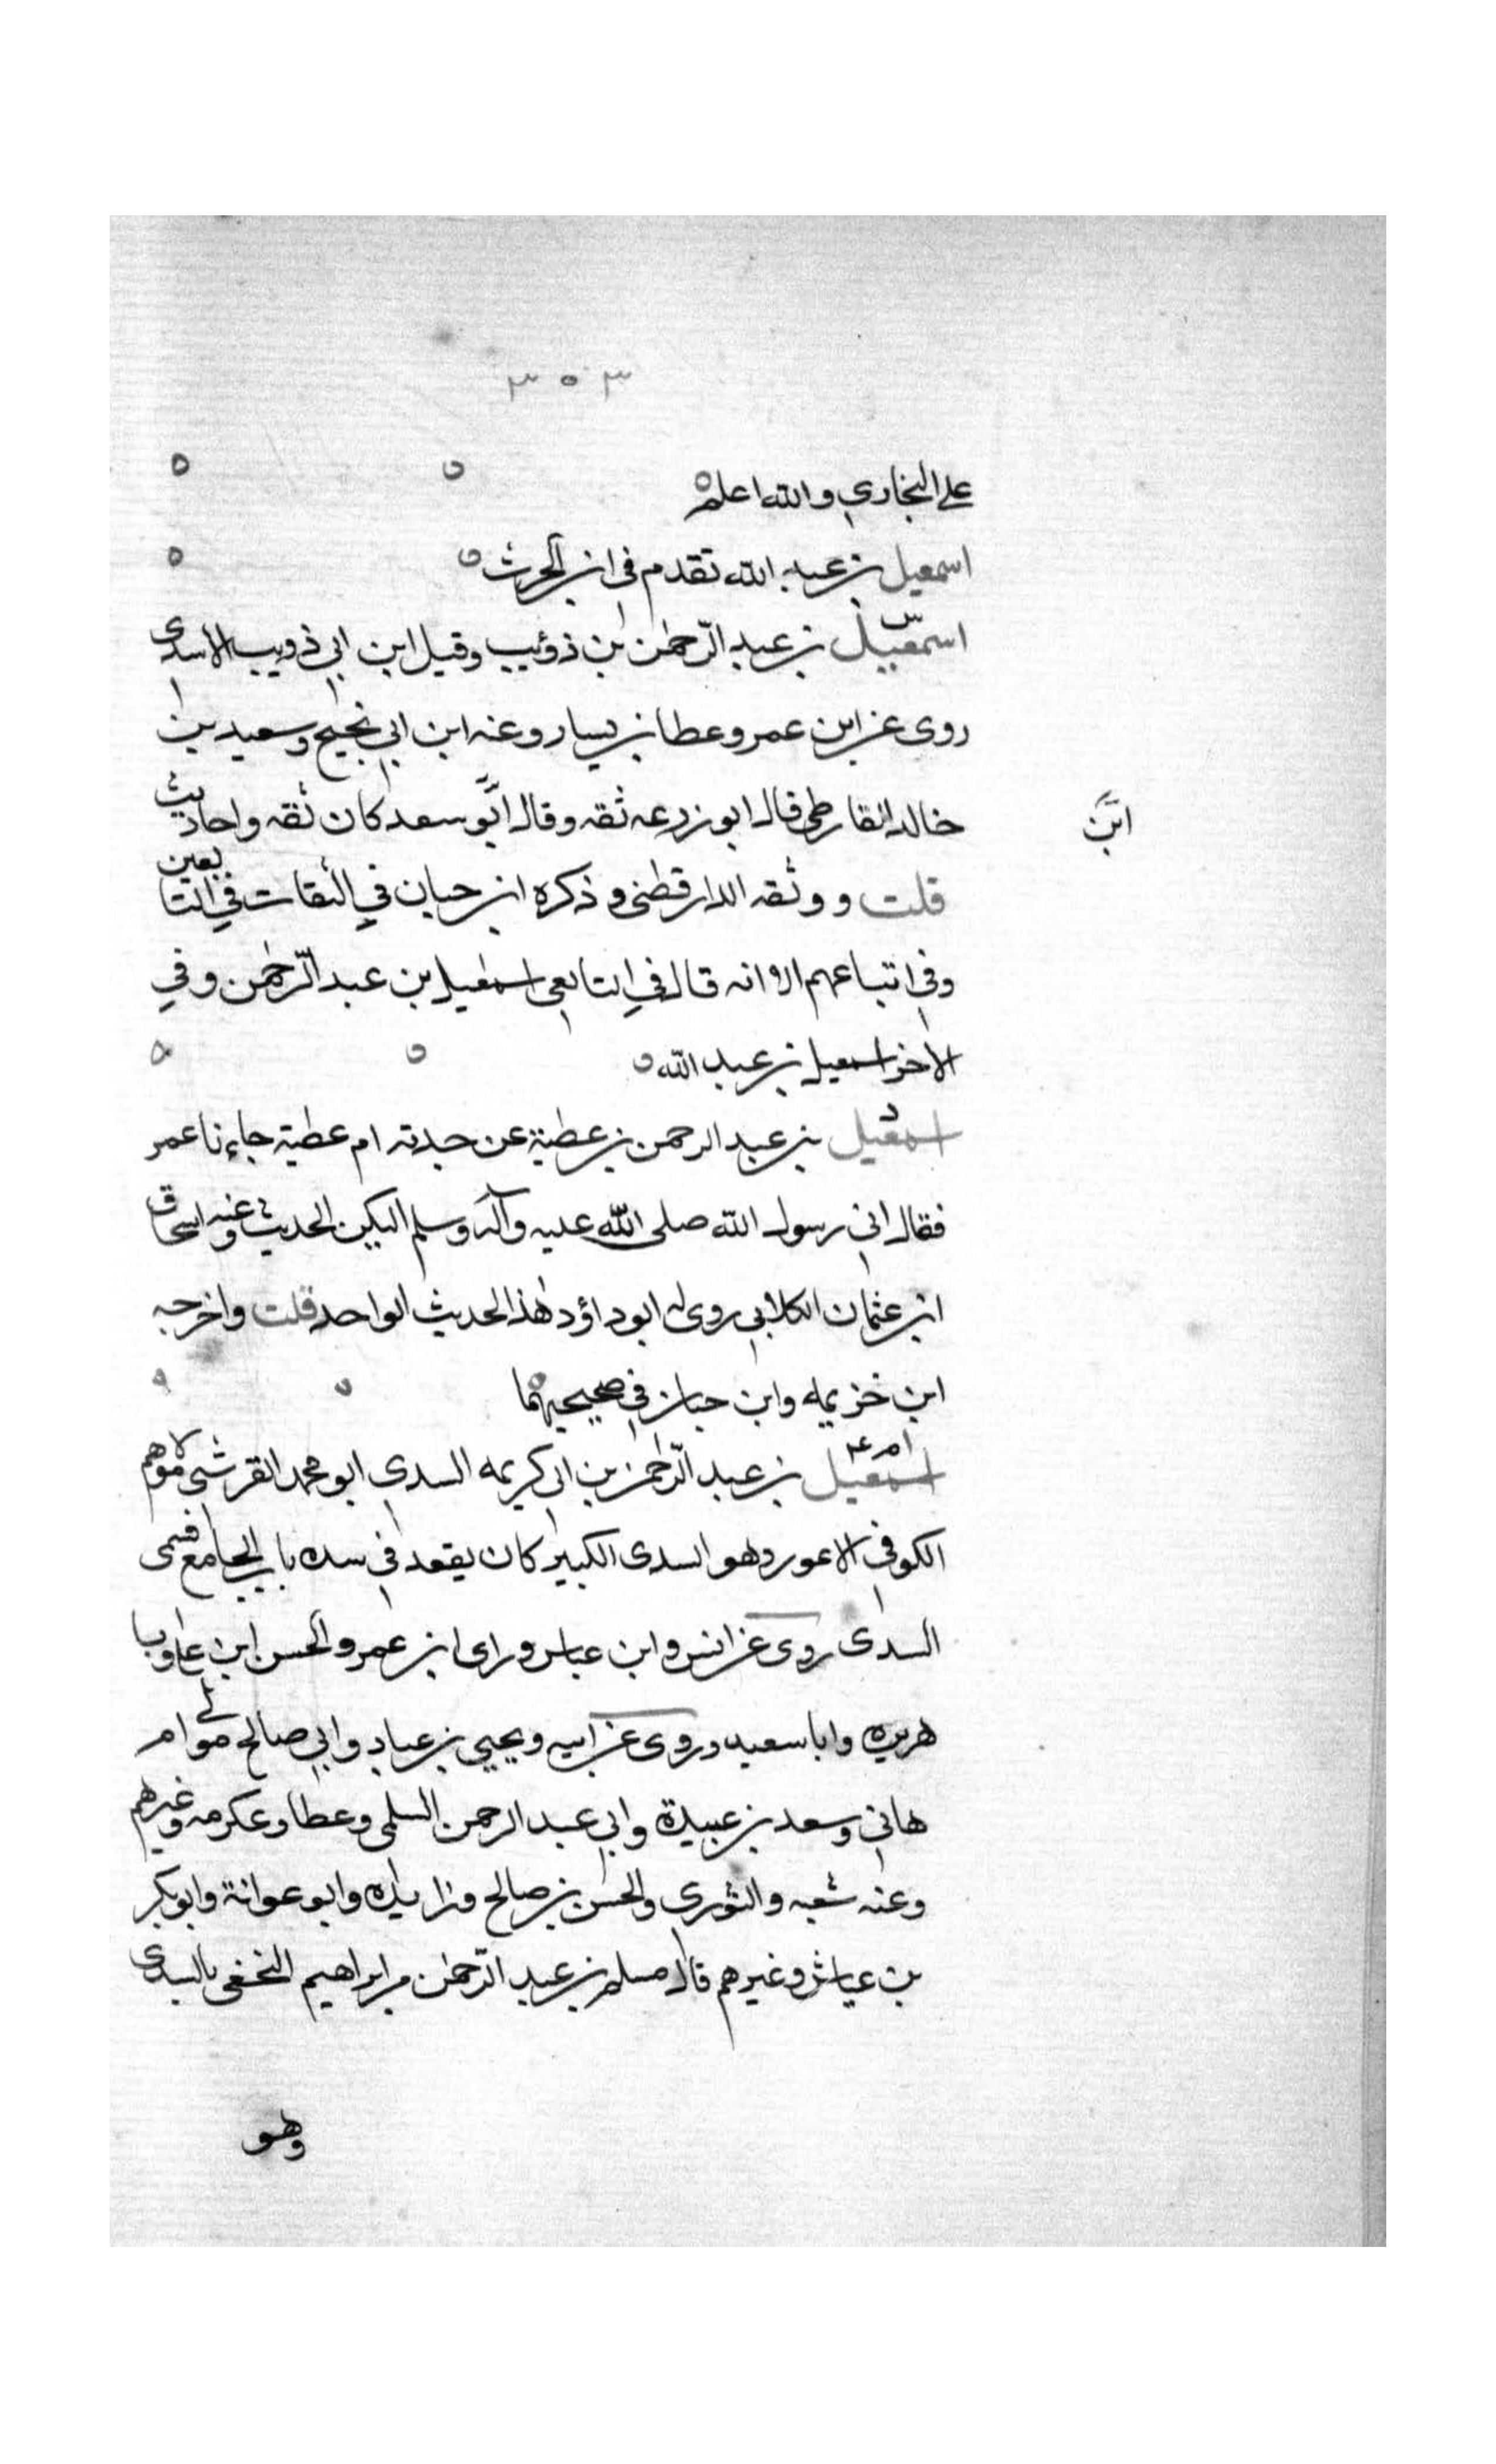 ٣٠٣
على البخاري والله اعلم
اسمعيل بن عبد الله تقدم في ابن الحرث
اسمعيل بن عبد الرّحمٰن بن ذؤيب وقيل ابن ابي ذويب الاسدى
روى عن ابن عمر وعطا بن يسار وعنه ابن ابي نجيح وسعيد بن
خالد القارظى قال ابو زرعه ثقه وقال ابو سعد كان ثقه واحاديث
ابن
قلت ووثقه الدارقطنى وذكره ابن حبان في الثقات في التابعين
وفي اتباعهم الا انه قال في التابعى اسمعيل بن عبد الرّحمٰن وفي
الاخر اسمعيل بن عبد الله
اسمعيل بن عبد الرحمن بن عطية عن جدته ام عطية جاءنا عمر
فقال اني رسول الله صلى الله عليه وآله وسلم اليكن الحديث وعنه اسحاق
ابن عثمان الكلابي روى له ابو داؤد هٰذا الحديث الواحد قلت واخرجه
ابن خزيمه وابن حبان في صحيحيهما
اسمعيل بن عبد الرّحمٰن بن ابي كريمه السدي ابو محمد القرشي مولاهم
الكوفي الاعور وهو السدى الكبير كان يقعد في سده باب الجامع فسمى
السدى روى عن انس وابن عباس وراى ابن عمر والحسن ابن على وابا
هريره وابا سعيد وروى عن ابيه ويحيي بن عباد وابي صالح مولى ام
هاني وسعد بن عبيدة وابي عبد الرحمن السلمى وعطا وعكرمه وغيرهم
وعنه شعبه والثورى والحسن بن صالح وزايده وابو عوانة وابو بكر
بن عياش وغيرهم قال مسلم بن عبد الرّحمٰن مر ابراهيم النخعى بالسدى
وهو